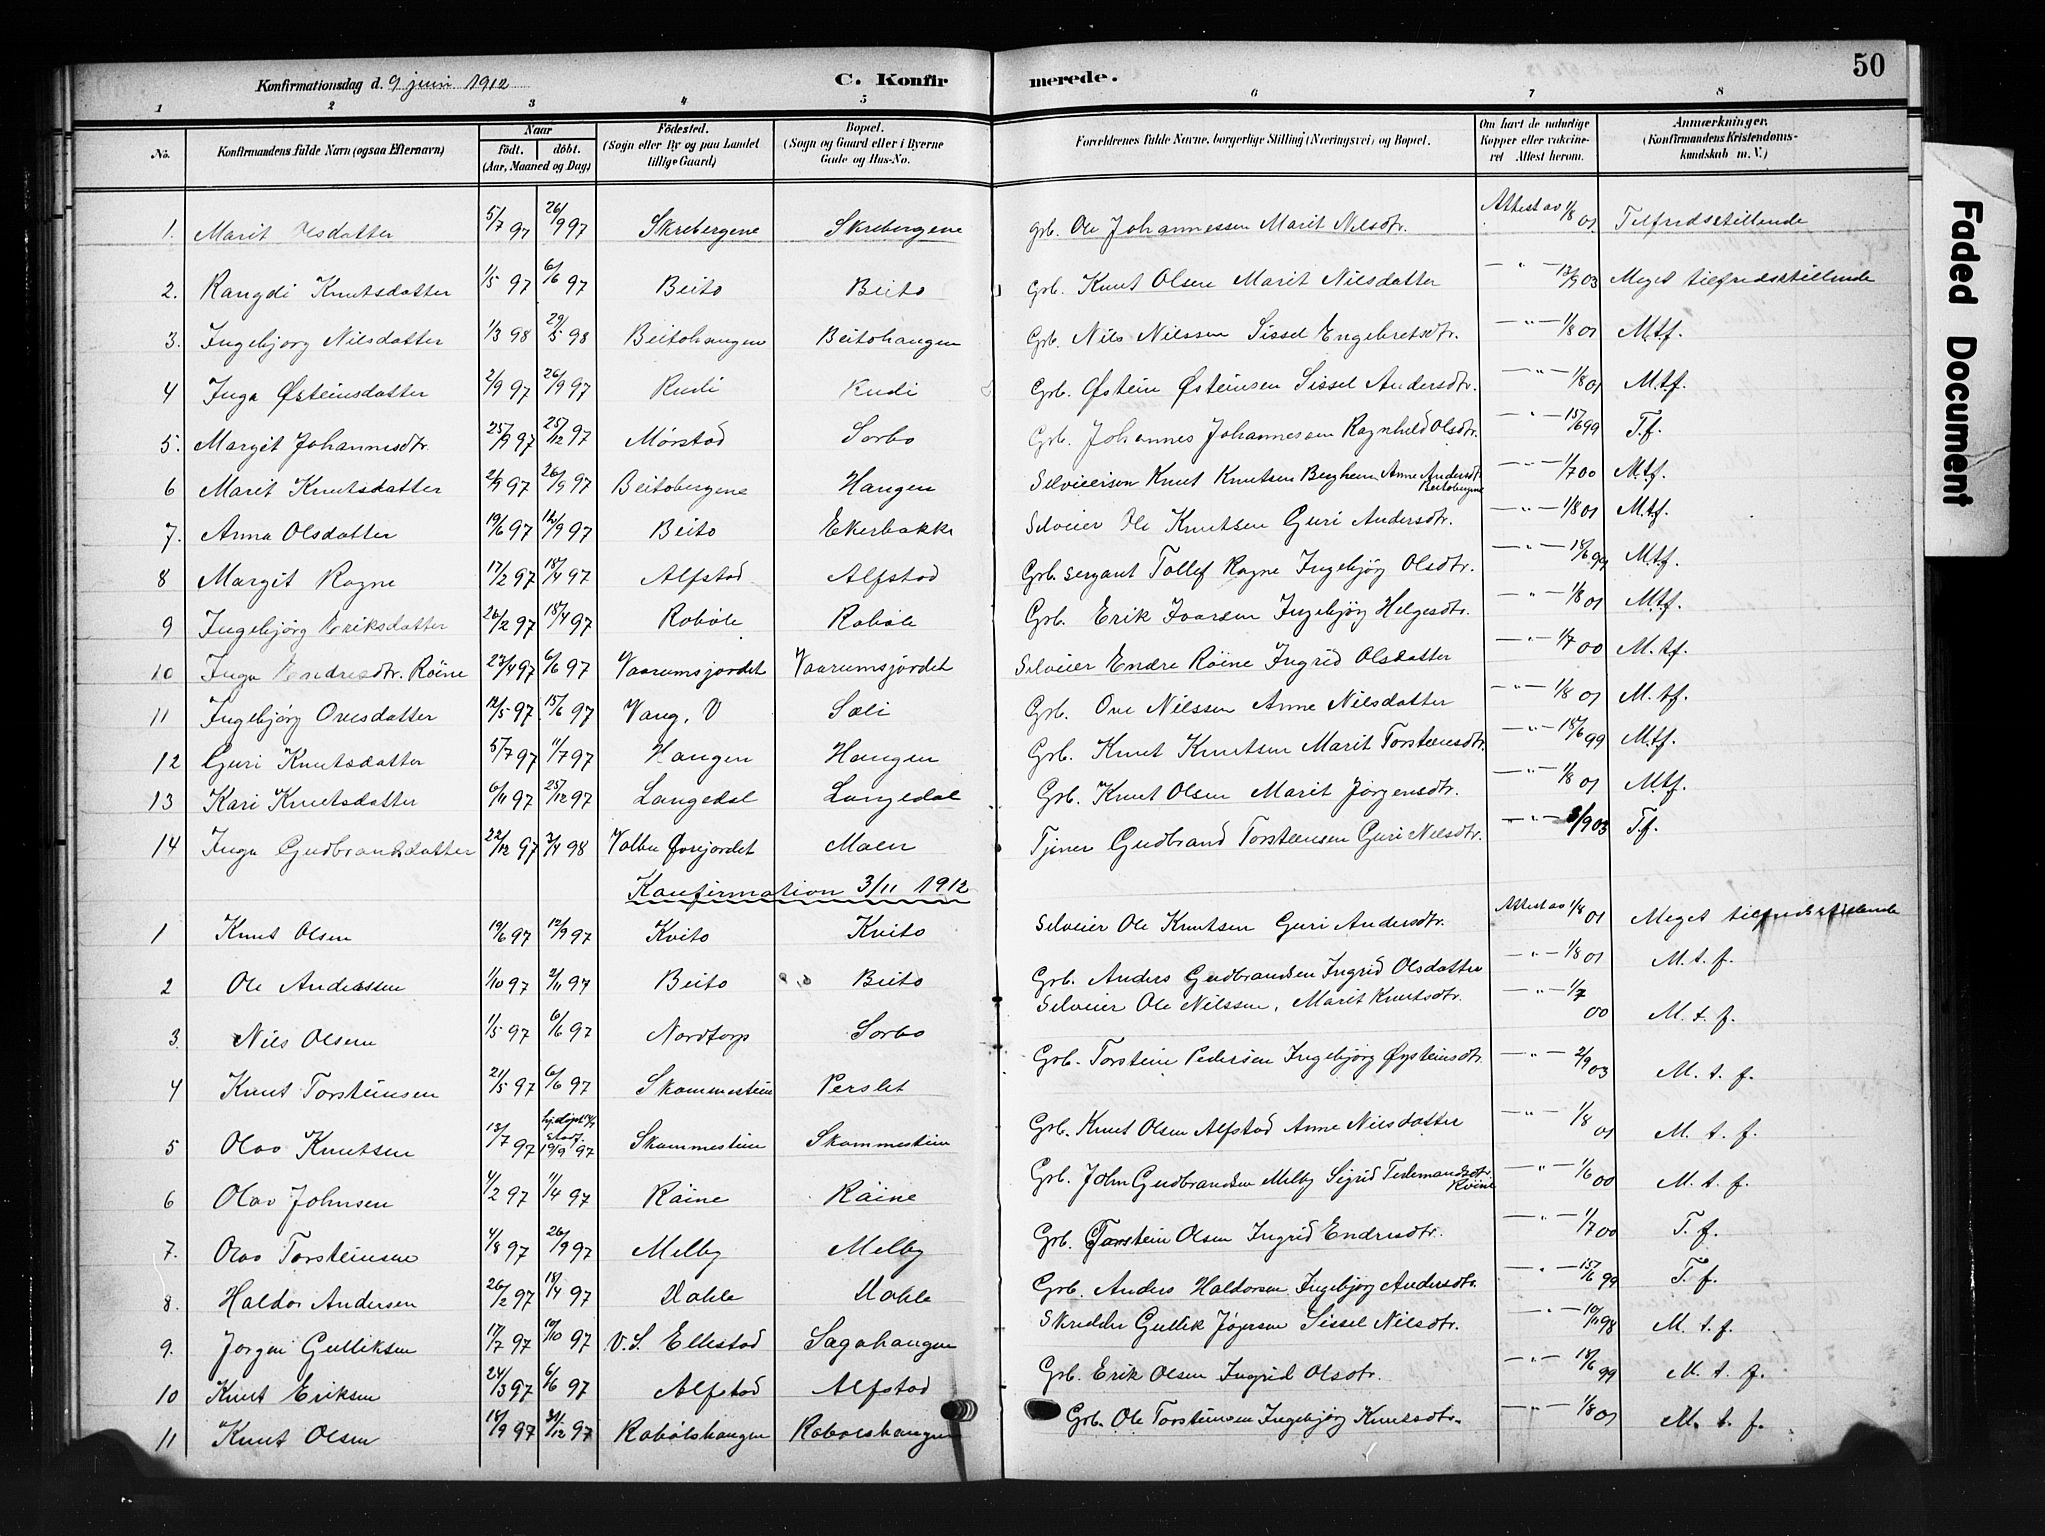 50
Faded Document
Konfirmationsdag d. 9 juni 1912
C. Konfirmerede.
1 2 3 4 5 6 7 8
No. Konfirmandens fulde Navn (ogsaa Efternavn) Naar født. døbt. (Aar, Maaned og Dag) Fødested. (Sogn eller By og paa Landet tillige Gaard) Bopæl. (Sogn og Gaard eller i Byerne Gade og Hus-No. Forældrenes fulde Navne, borgerlige Stilling (Næringsvei) og Bopæl. Om havt de naturlige Kopper eller vakcineret Attest herom. Anmærkninger. (Konfirmandens Kristendomskundskab m. V.)
1. Marit Olsdatter 5/7 97 26/9 97 Skrebergene Skrebergene Grb. Ole Johannessen Marit Nilsdtr. Attest av 1/8 01 Tilfredsstillende
2. Rangdi Knutsdatter 1/5 97 6/6 97 Beito Beito Grb. Knut Olsen Marit Nilsdatter — " — 13/9 03 Meget tilfredsstillende
3. Ingebjørg Nilsdatter 1/3 98 29/5 98 Beitohaugen Beitohaugen Grb. Nils Nilssen Sissel Engebretsdtr. — " — 1/8 01 M.tf.
4 Inga Østeinsdatter 2/9 97 26/9 97 Rudi Rudi Grb. Østein Østeinsen Sissel Andersdtr. — " — 1/8 01 M.tf.
5. Margit Johannesdtr. 25/9 97 25/12 97 Mørstad Sorbo Grb. Johannes Johannesen Ragnhild Olsdtr. — " — 15/6 99 T.f.
6 Marit Knutsdatter 2/9 97 26/9 97 Beitobergene Haugen Selveiersøn Knut Knutsen Berghem Anne Andersdtr. Beitobergene — " — 1/7 00 M.tf.
7. Anna Olsdatter 19/6 97 12/9 97 Beito Ekerbakke Selveier Ole Knutsen Guri Andersdtr. — " — 1/8 01 M.tf.
8 Margit Rogne 17/2 97 18/4 97 Alfstad Alfstad Grb. sergant Tollef Rogne Ingebjørg Olsdtr. — " — 15/6 99 M.tf.
9 Ingebjørg Eriksdatter 26/2 97 18/4 97 Robøle Robøle Grb. Erik Ivarsen Ingebjørg Helgesdtr. — " — 1/8 01 M.tf.
10 Inga Endresdtr. Røine 23/4 97 6/6 97 Vaarumsjordet Vaarumsjordet Selveier Endre Røine Ingrid Olsdatter — " — 1/7 00 M.tf.
11 Ingebjørg Ovesdatter 12/5 97 15/6 97 Vang, V Sæli Grb. Ove Nilssen Anne Nilsdatter — " — 1/8 01 M.tf.
12 Guri Knutsdatter 5/7 97 11/7 97 Haugen Haugen Grb. Knut Knutsen Marit Torsteinsdtr. — " — 15/6 99 M.tf.
13 Kari Knutsdatter 6/11 97 25/12 97 Langedal Langedal Grb. Knut Olsen Marit Jørgensdtr. — " — 1/8 01 M.tf.
14 Inga Gudbrandsdatter 22/12 97 3/4 98 Volbu Øvrejordet Moen Tjener Gudbrand Torsteinsen Guri Nilsdtr. — " — 3/9 03 T.f.
Konfirmation 3/11 1912
1 Knut Olsen 19/6 97 12/9 97 Kvito Kvito Selveier Ole Knutsen Guri Andersdtr. Attest av 1/8 01 Meget tilfredsstillende
2 Ole Anderssen 1/10 97 2/11 97 Beito Beito Grb. Anders Gudbrandsen Ingrid Olsdatter — " — 1/8 01 M. t. f.
3. Nils Olsen 1/5 97 6/6 97 Nordtorp Sorbo Selveier Ole Nilssen, Marit Knutsdtr. — " — 1/7 00 M. t. f.
4 Knut Torsteinsen 21/5 97 6/6 97 Skammestein Perslet Grb. Torstein Pedersen Ingebjørg Øysteinsdtr. — " — 2/9 03 M. t. f.
5 Olav Knutsen 13/7 97 hjdøpt stadf. 19/9 97 Skammestein Skammestein Grb. Knut Olsen Alfstad Anne Nilsdatter — " — 1/8 01 M. t. f.
6 Olav Johnsen 4/2 97 11/4 97 Røine Røine Grb. John Gudbrandsen Melby Sigrid Tidemandsdtr. Røine — " — 1/6 00 M. t. f.
7. Olav Torsteinsen 4/8 97 26/9 97 Melby Melby Grb. Torstein Olsen Ingrid Endresdtr. — " — 1/7 00 T. f.
8. Haldor Andersen 26/2 97 18/4 97 Vahle Vahle Grb. Anders Haldorsen Ingebjørg Andersdtr. — " — 15/6 99 T. f.
9. Jørgen Gulliksen 17/7 97 10/10 97 V.S. Ellestad Sagahaugen Skrædder Gullik Jøgersen Sissel Nilsdtr. — " — 10/11 98 M. t. f.
10 Knut Eriksen 24/3 97 6/6 97 Alfstad Alfstad Grb. Erik Olsen Ingrid Olsdtr. — " — 15/6 99 M. t. f.
11 Knut Olsen 18/9 97 31/12 97 Robølshaugen Robølshaugen Grb. Ole Torsteinsen Ingebjørg Knutsdtr. — " — 1/8 01 M. t. f.